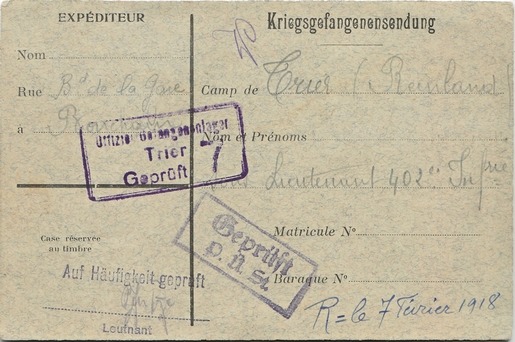 EXPÉDITEUR
Nom
Rue Bd de la Gare
à
Offizier Gefangenenlager
Trier 7
Geprüft
Case réservée
au timbre
Auf Häufigkeit geprüft
Leutnant
Kriegsgefangenensendung
Camp de Trier (
Nom et Prénoms
Lieutenant 402e Infrie
Matricule No
Geprüft
P. Ü. St.
Baraque No
R = le 7 Février 1918